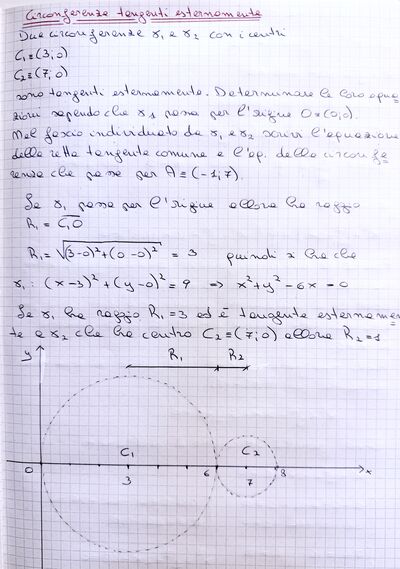 Circonferenze tangenti esternamente
Due circonferenze γ₁ e γ₂ con i centri
C₁≡(3;0)
C₂≡(7;0)
sono tangenti esternamente. Determinare le loro equa
zioni sapendo che γ₁ passa per l'origine O≡(0;0).
Nel fascio individuato da γ₁ e γ₂ scrivi l'equazione
della retta tangente comune e l'eq. della circonfe
renza che passa per A≡(-1;7).
Se γ₁ passa per l'origine allora ha raggio
R₁ = C₁O
R₁ = √(3-0)²+(0-0)² = 3 quindi si ha che
γ₁: (x-3)²+(y-0)² = 9 ⇒ x²+y²-6x=0
Se γ₁ ha raggio R₁=3 ed è tangente esternamen
te a γ₂ che ha centro C₂≡(7;0) allora R₂=1
y R₁ R₂
C₁ C₂
0 3 6 7 8 x